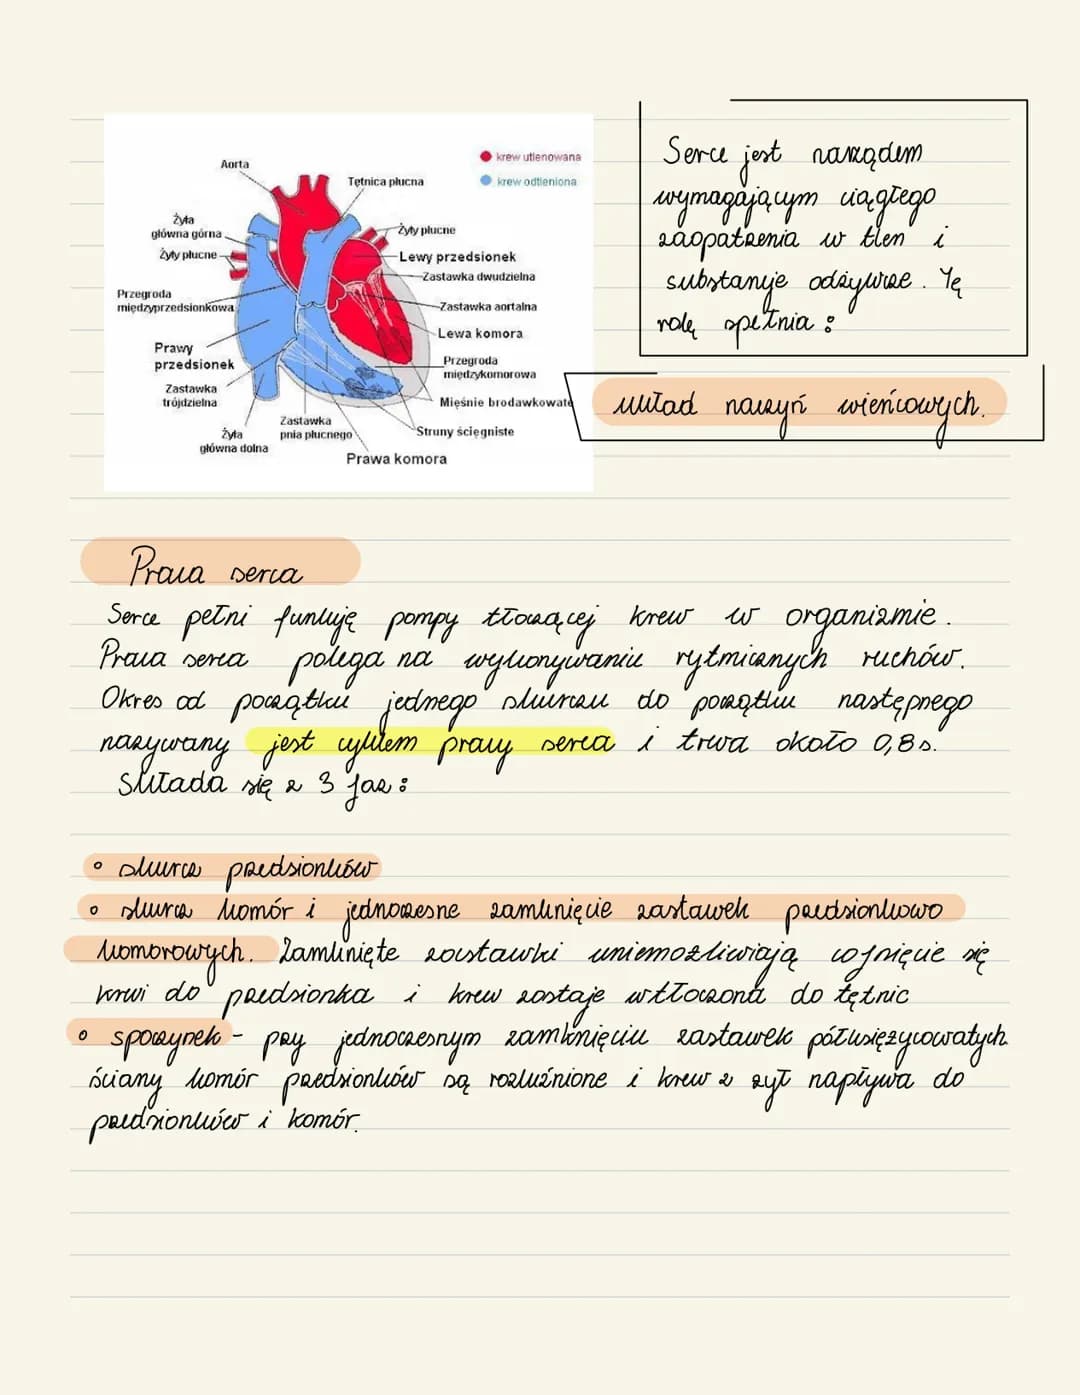 Aorta
krew utlenowana
krew odtleniona
Tętnica płucna
Żyła
główna górna
Żyły płucne
Żyły płucne
Lewy przedsionek
Zastawka dwudzielna
Przegroda
międzyprzedsionkowa
Zastawka aortalna
Lewa komora
Prawy
przedsionek
Przegroda
międzykomorowa
Zastawka
trójdzielna
Mięśnie brodawkowate
Zastawka
pnia płucnego
Struny ścięgniste
Żyła
główna dolna
Prawa komora
Serce jest narządem
wymagającym ciągłego
zaopatrzenia w tlen i
substancje odżywcze. Tę
rolę spełnia :
układ naczyń wieńcowych.
Praca serca
Serce pełni funkcję pompy tłoczącej krew w organizmie.
Praca serca polega na wykonywaniu rytmicznych ruchów.
Okres od początku jednego skurczu do początku następnego
nazywany jest cyklem pracy serca i trwa około 0,8 s.
Składa się z 3 faz :
• skurcz przedsionków
• skurcz komór i jednoczesne zamknięcie zastawek przedsionkowo
komorowych. Zamknięte zastawki uniemożliwiają cofnięcie się
krwi do przedsionka i krew zostaje wtłoczona do tętnic
• spoczynek - przy jednoczesnym zamknięciu zastawek półksiężycowatych
ściany komór przedsionków są rozluźnione i krew z żył napływa do
przedsionków i komór.